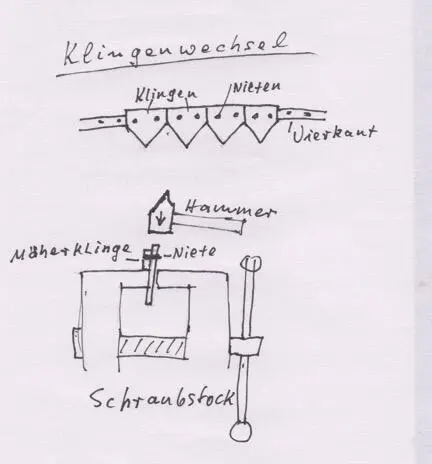 Klingenwechsel
Klingen
Nieten
Vierkant
Hammer
Mäherklinge
Niete
Schraubstock